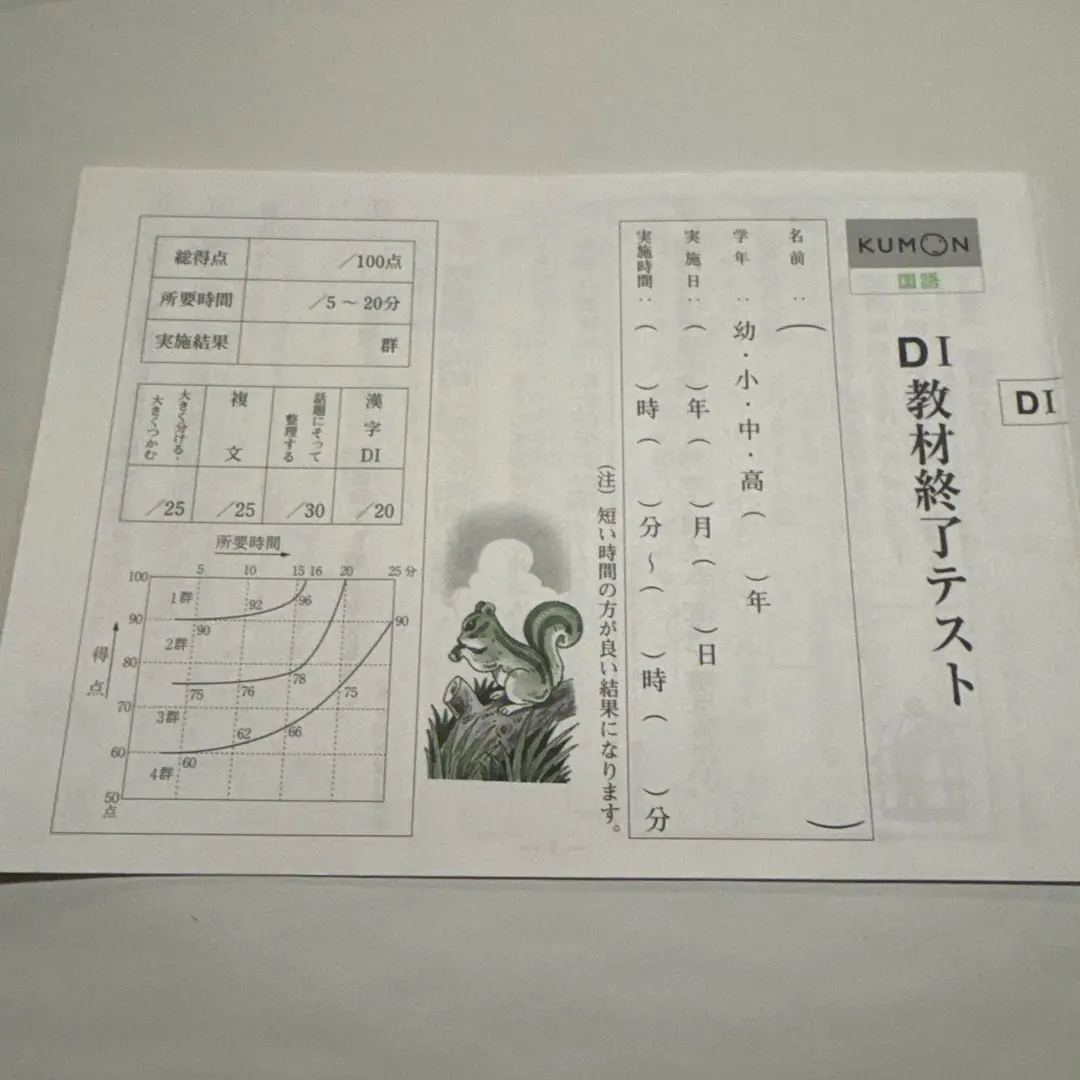 KUMON
国語
DI
DI教材終了テスト
名前：（　）
学年：幼・小・中・高（　）年
実施日：（　）年（　）月（　）日
実施時間：（　）時（　）分～（　）時（　）分
（注）短い時間の方が良い結果になります。
総得点 ／100点
所要時間 ／5～20分
実施結果 群
漢字DI ／20
話題にそって整理する ／30
複文 ／25
大きく分ける・大きくつかむ ／25
所要時間
5 10 15 16 20 25分
得点
100
90
80
70
60
50点
1群
2群
3群
4群
90 92 96
75 76 78
60 62 66 75 90